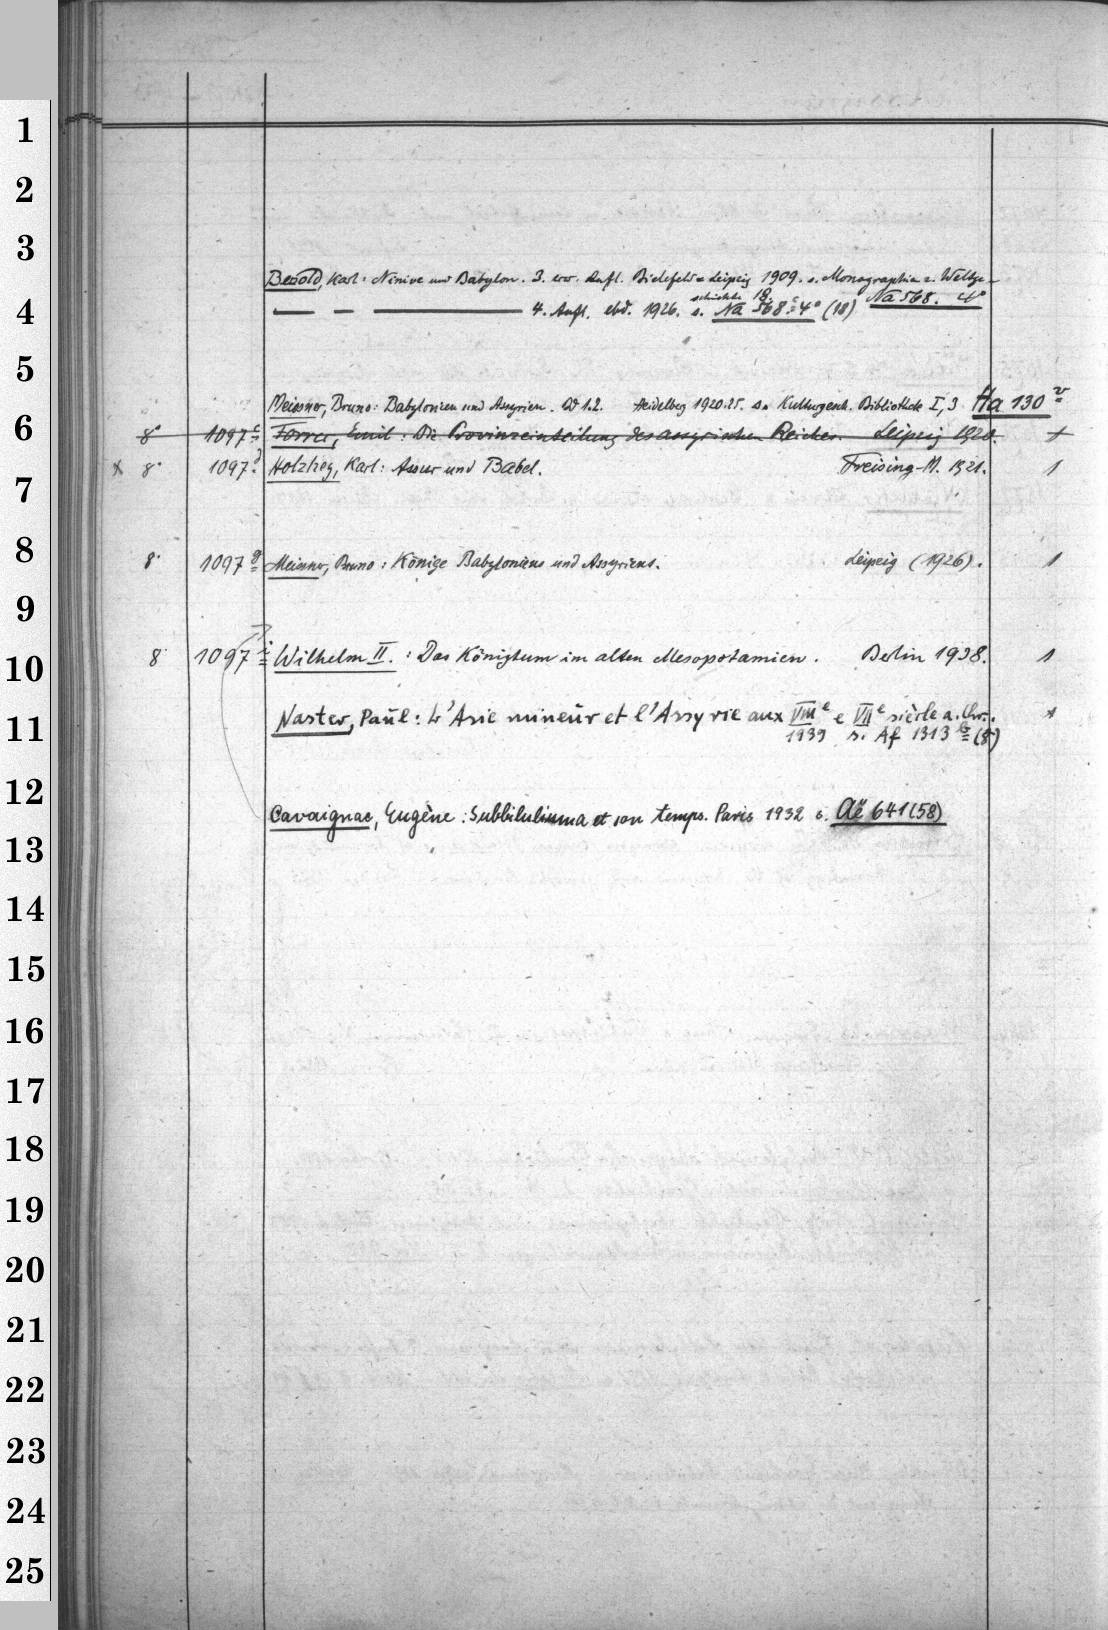 1
2
3
Bezold, Karl: Ninive und Babylon. 3. erw. Aufl. Bielefeld u. Leipzig 1909. s. Monographien z. Weltge-
schichte 18. Na 568. 4°
4
— — — 4. Aufl. ebd. 1926. s. Na 568 c 4° (18)
5
Meissner, Bruno: Babylonien und Assyrien. Bd 1.2. Heidelberg 1920.25. s. Kulturgesch. Bibliothek I, 3 Ha 130 v
6
8° 1097 c Forrer, Emil: Die Provinzeinteilung des assyrischen Reiches. Leipzig 1920. 1
x 8° 1097 Holzhey, Karl: Assur und Babel. Freising-M. 1921. 1
7
8
8° 1097 g Meissner, Bruno: Könige Babyloniens und Assyriens. Leipzig (1926). 1
9
10
8° 1097 i Wilhelm II.: Das Königtum im alten Mesopotamien. Berlin 1938. 1
11
Naster, Paul: L'Asie mineur et l'Assyrie aux VIIIe e VIIe siècle a. Chr.
1939 s. Af 1313 b (8)
12
Cavaignac, Eugène: Subbiluliuma et son temps. Paris 1932 s. Aë 641 (58)
13
14
15
16
17
18
19
20
21
22
23
24
25